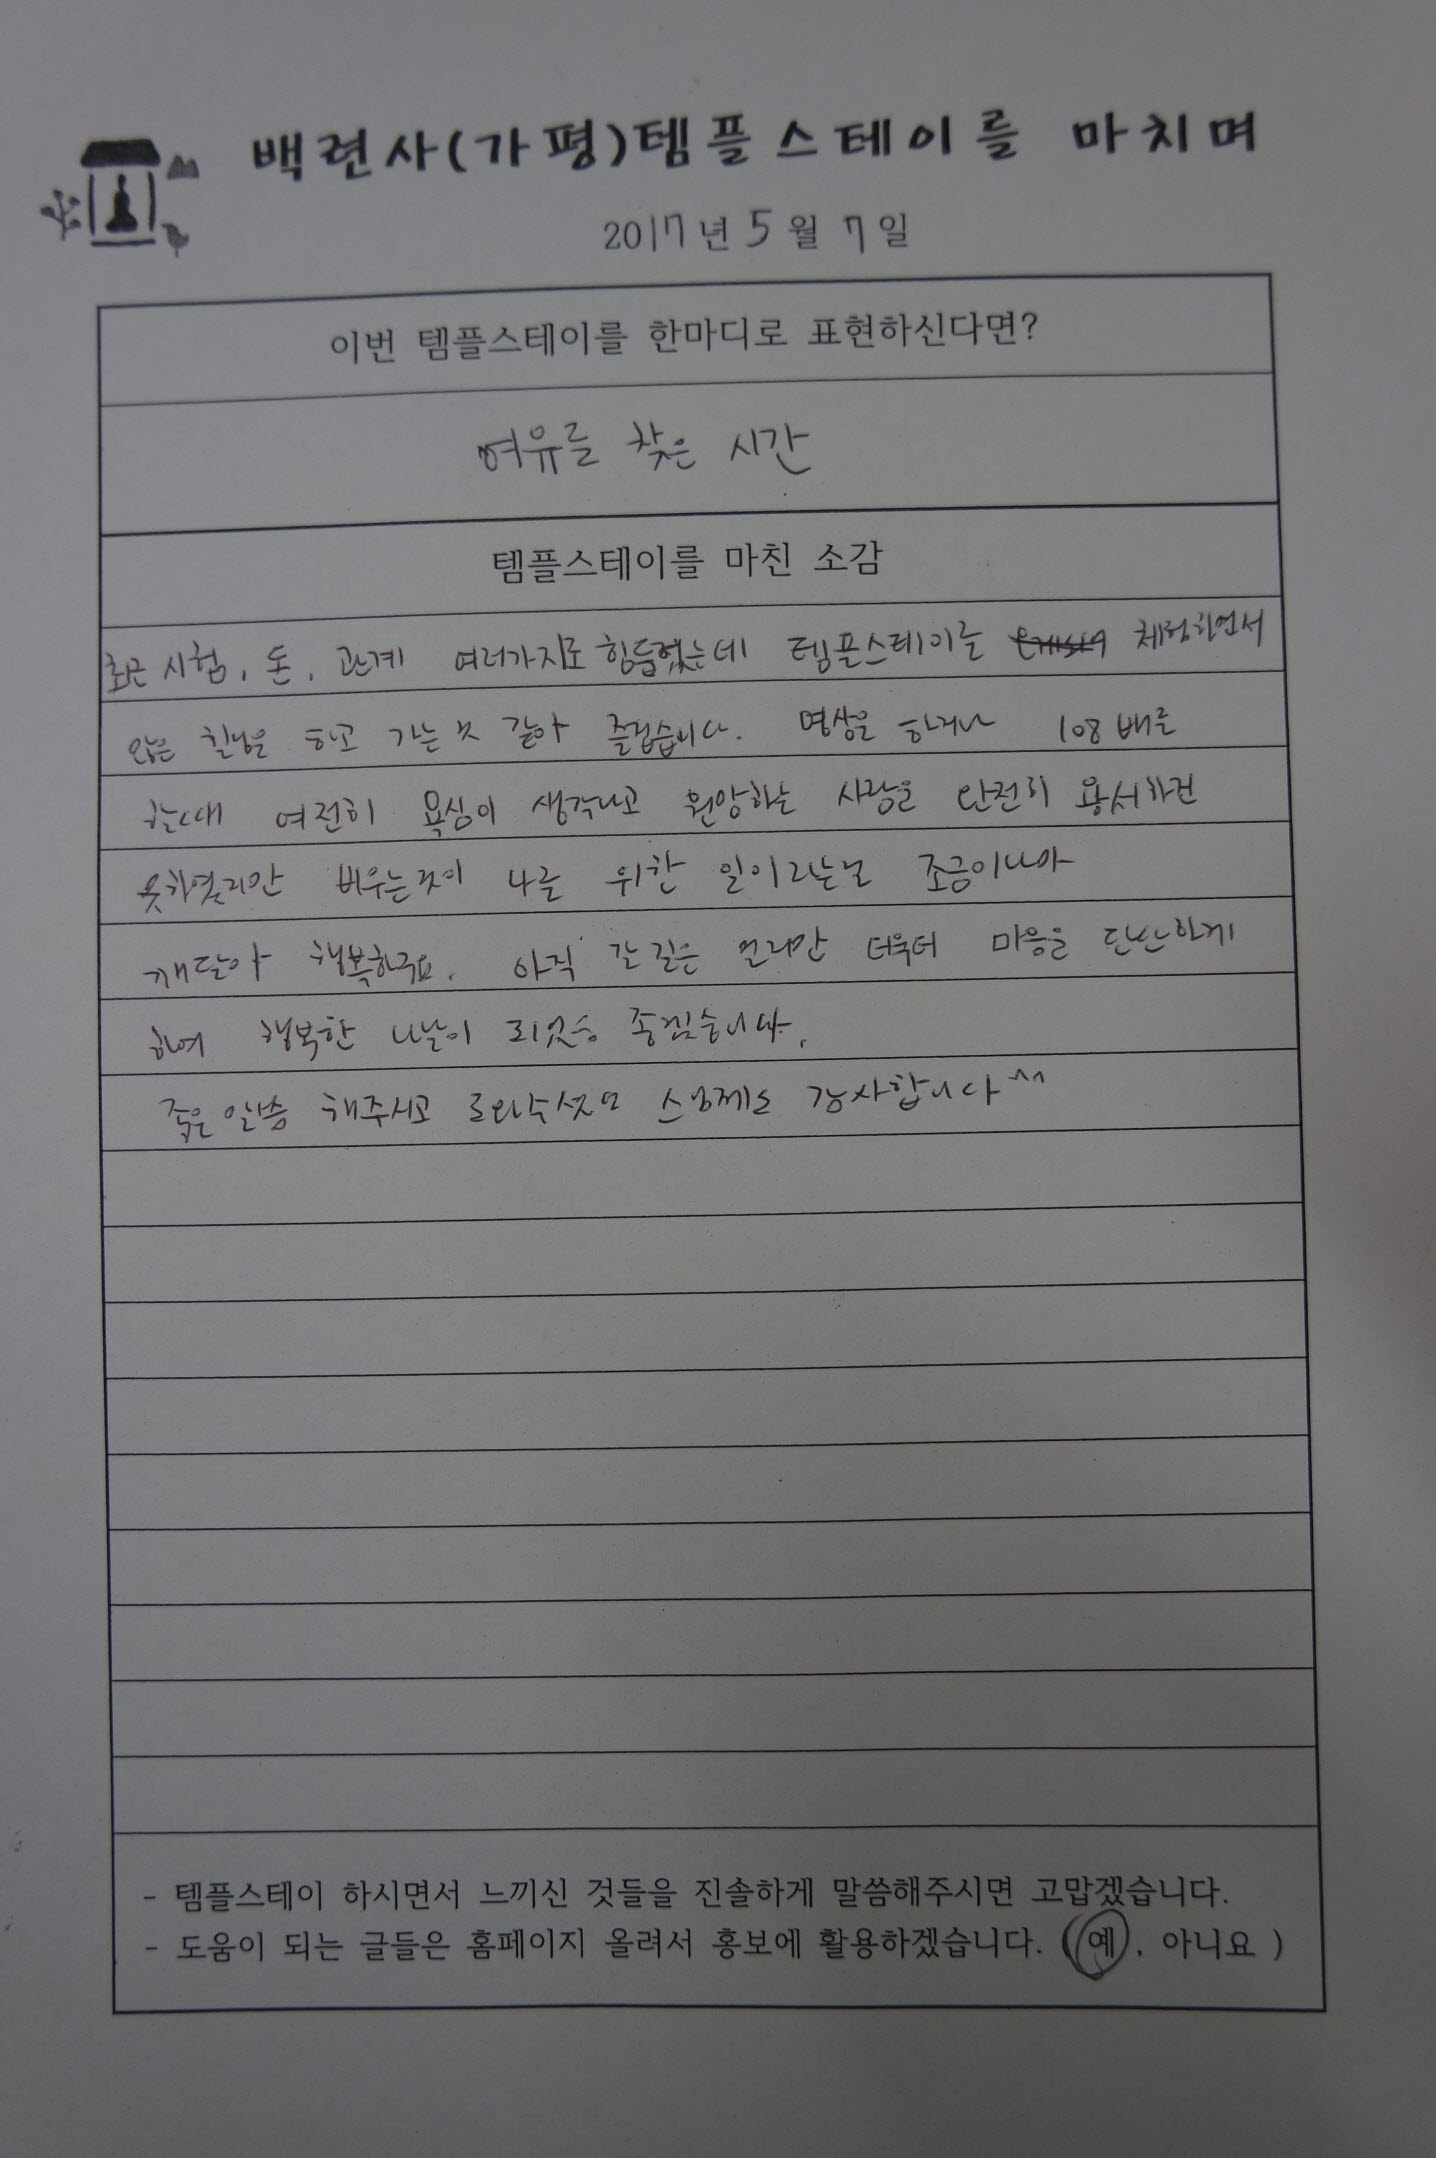 백련사(가평)템플스테이를 마치며
2017년 5월 7일
이번 템플스테이를 한마디로 표현하신다면?
여유를 찾은 시간
템플스테이를 마친 소감
최근 시험, 돈, 관계 여러가지로 힘들었는데 템플스테이를 체험하면서
많은 힐링을 하고 가는 것 같아 즐겁습니다. 명상을 하거나 108배를
할때 여전히 욕심이 생각나고 원망하는 사람을 완전히 용서하진
못하였지만 비우는것이 나를 위한 일이라는걸 조금이나마
깨달아 행복하구요. 아직 갈 길은 멀지만 더욱더 마음을 단단하게
하여 행복한 나날이 되었음 좋겠습니다.
좋은말씀 해주시고 도와주셨던 감사합니다^^
- 템플스테이 하시면서 느끼신 것들을 진솔하게 말씀해주시면 고맙겠습니다.
- 도움이 되는 글들은 홈페이지 올려서 홍보에 활용하겠습니다. (예, 아니요 )